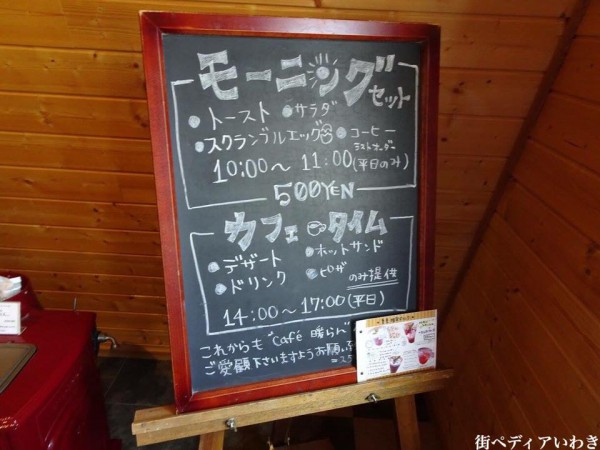 モーニング
セット
・トースト ・サラダ
・スクランブルエッグ ・コーヒー
10:00～11:00(平日のみ)
500YEN
カフェタイム
・デザート ・ホットサンド
・ドリンク ・ピザ のみ提供
14:00～17:00(平日)
これからも"Café 暖らん
ご愛顧下さいますようお願い
街ペディアいわき